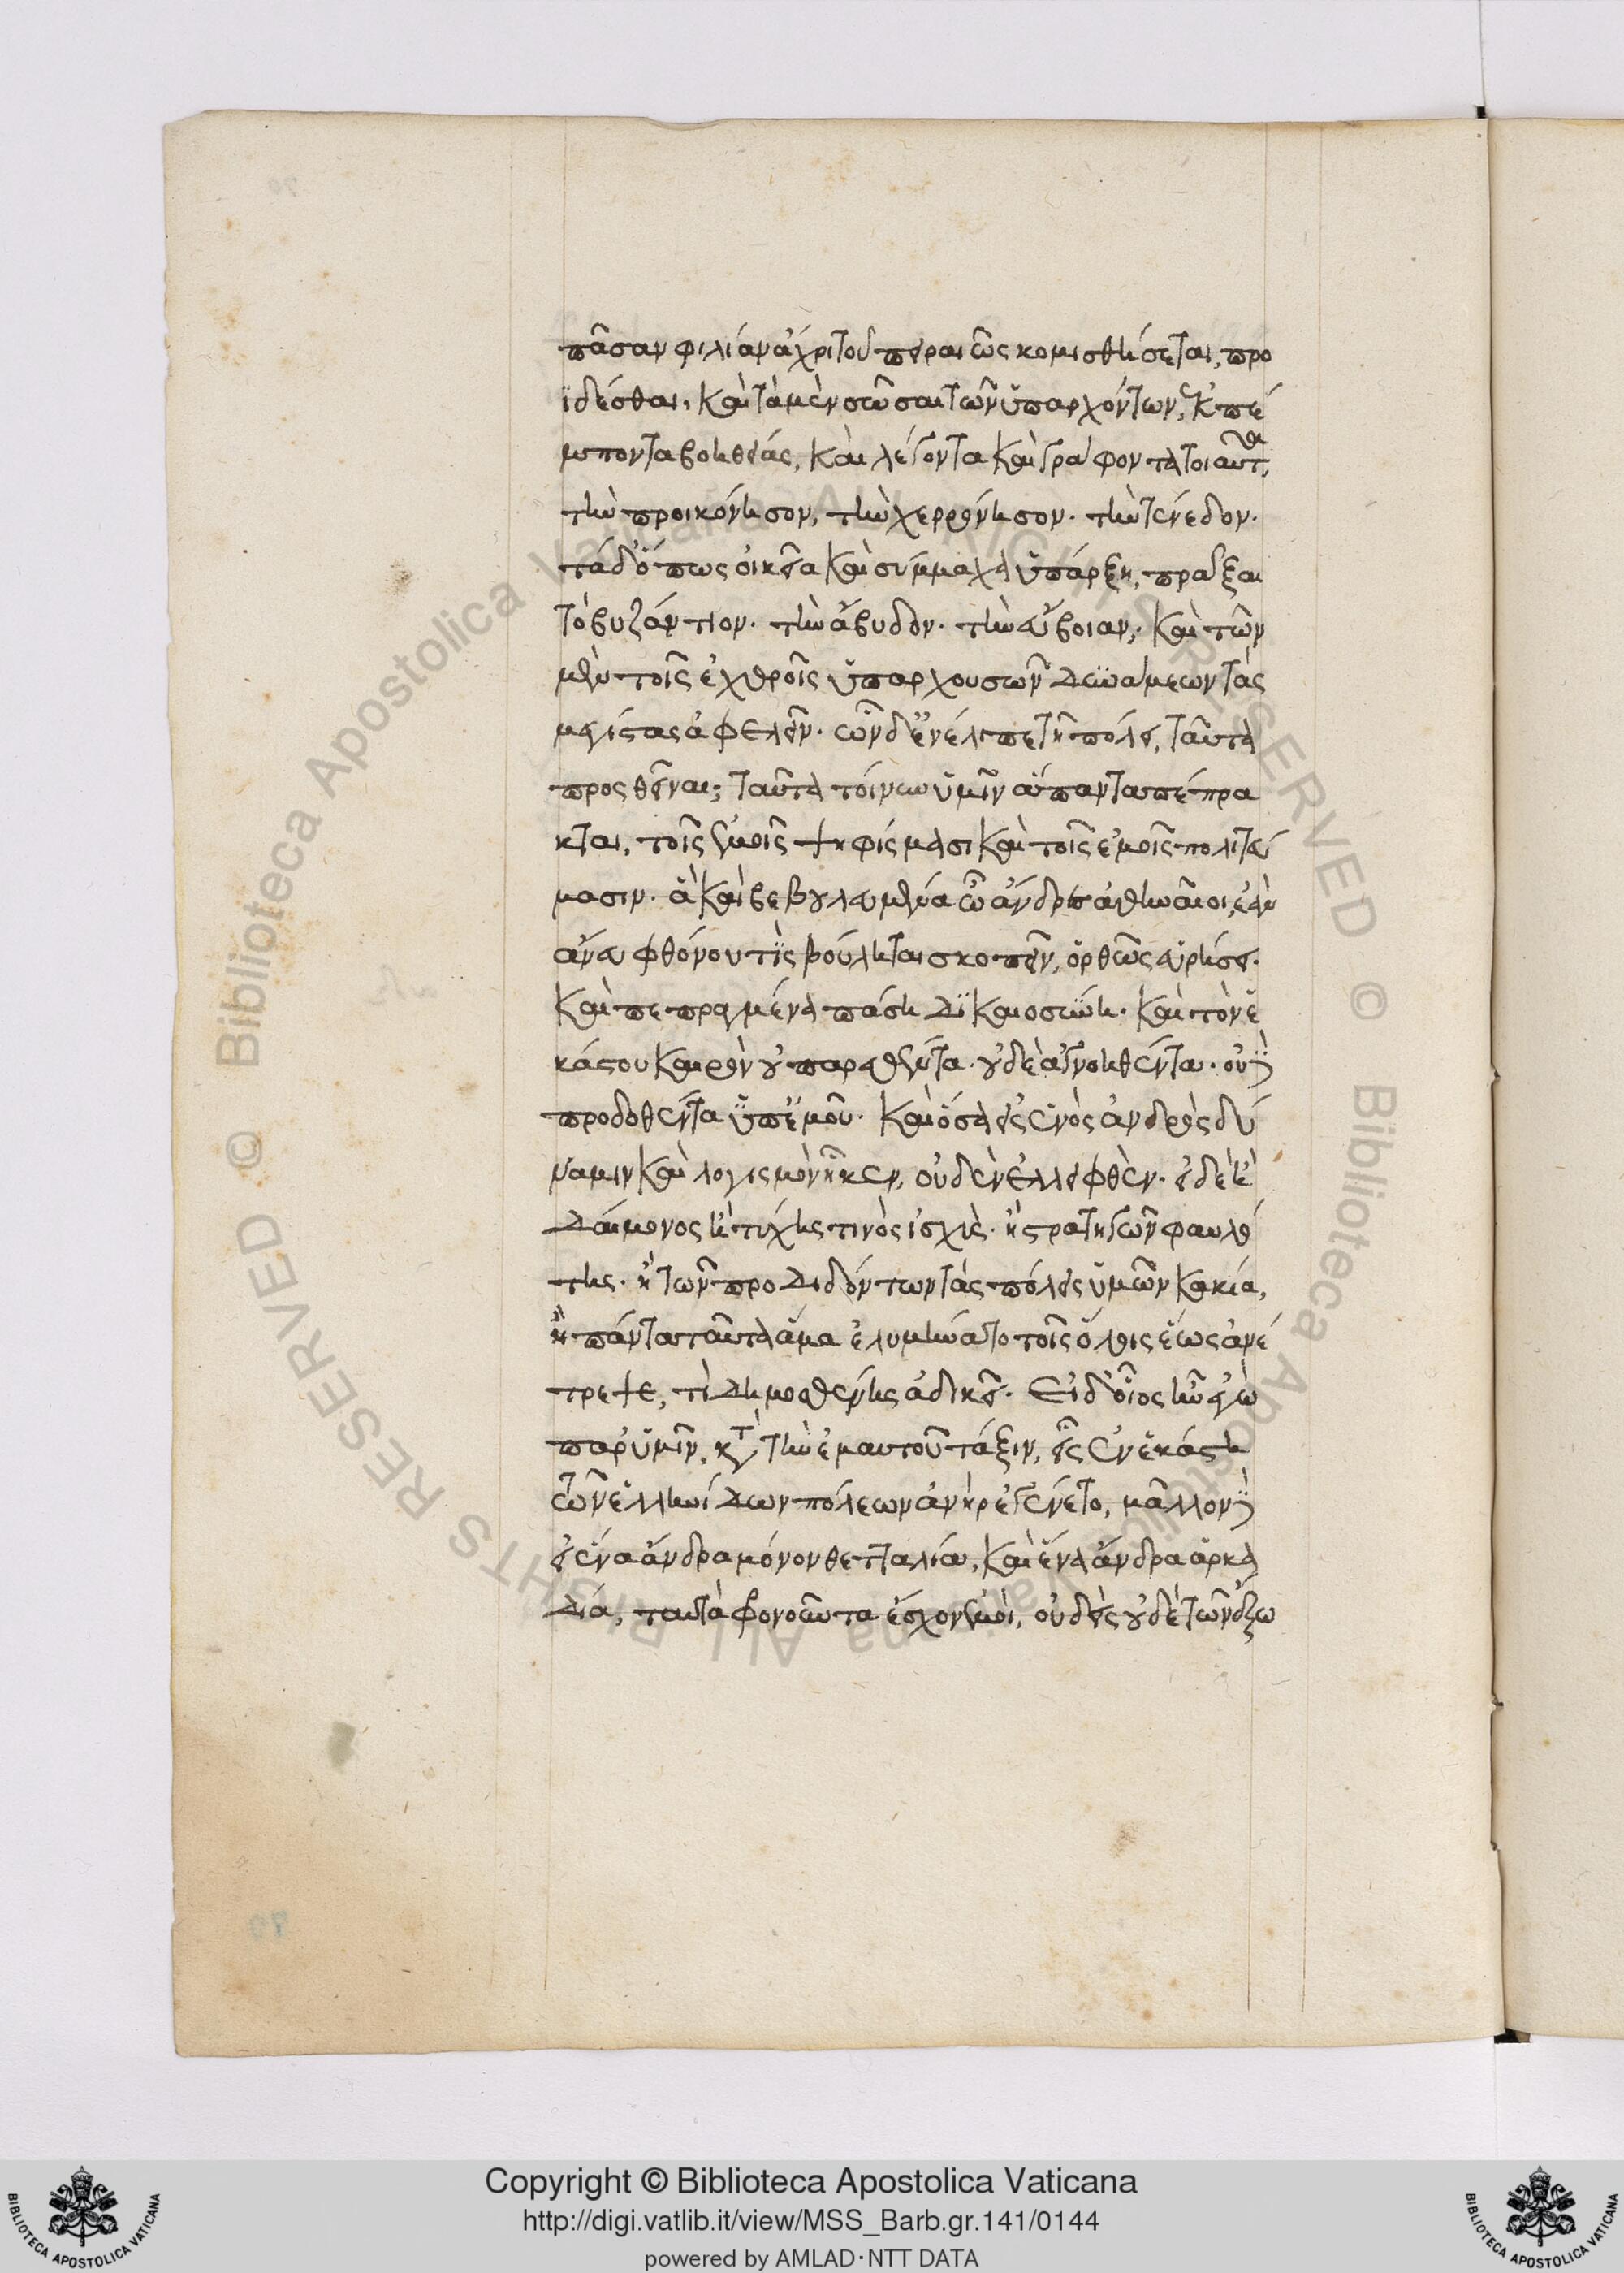 πᾶσαν φιλίαν ἄχρι τοῦ πειραιῶς κομισθήσεται, προ
ϊδέσθαι, καὶ τὰ μὲν σῶσαι τῶν ὑπαρχόντων, ἐκπέ
μποντα βοηθείας, καὶ λέγοντα καὶ γράφοντα τοιαῦτα,
τὴν προικόνησον, τὴν χερρόνησον. τὴν τένεδον.
τὰ δ' ὅπως οἰκεῖα καὶ σύμμαχα ὑπάρξη, πρᾶξαι
τὸ βυζάντιον. τὴν ἄβυδον. τὴν εὔβοιαν, καὶ τῶν
μὲν τοῖς ἐχθροῖς ὑπαρχουσῶν δυνάμεων τὰς
μεγίστας ἀφελεῖν. ὧν δ' ἐνέλιπε τῆ πόλει, ταῦτα
προσθεῖναι; ταῦτα τοίνυν ὑμῖν ἅπαντα πέπρα
κται, τοῖς ἐμοῖς ψηφίσμασι καὶ τοῖς ἐμοῖς πολιτεύ
μασιν. ἃ καὶ βεβουλευμένα ὦ ἄνδρες ἀθηναῖοι, ἐὰν
ἄνευ φθόνου τὶς βούληται σκοπεῖν, ὀρθῶς εὑρήσει.
καὶ πεπραγμένα πάση δικαιοσύνη. καὶ τὸν ἑ
κάστου καιρὸν οὐ παρεθέντα. οὐδὲ ἀγνοηθέντα. οὐδὲ
προδοθέντα ὑπ' ἐμοῦ. καὶ ὅσα εἰς ἑνὸς ἀνδρὸς δύ
ναμιν καὶ λογισμὸν ἧκεν, οὐδὲν ἐλλειφθὲν. εἰ δὲ ἢ
δαίμονος ἢ τύχης τινὸς ἰσχὺς. ἢ στρατηγῶν φαυλό
της. ἢ τῶν προδιδόντων τὰς πόλεις ὑμῶν κακία,
ἢ πάντα ταῦτα ἅμα ἐλυμήνατο τοῖς ὅλοις ἕως ἀνέ
τρεψε, τὶ δημοσθένης ἀδικεῖ. Εἰ δ' οἷος ἦν ἐγὼ
παρ' ὑμῖν, κατὰ τὴν ἐμαυτοῦ τάξιν, εἷς ἐν ἑκάστη
τῶν ἑλληνίδων πόλεων ἀνὴρ ἐγένετο, μᾶλλον δὲ
εἰ ἕνα ἄνδρα μόνον θετταλία, καὶ ἕνα ἄνδρα ἀρκα
δία, ταυτὰ φρονοῦντα ἔσχον ἐμοί, οὐδεὶς οὐδὲ τῶν ἔξω